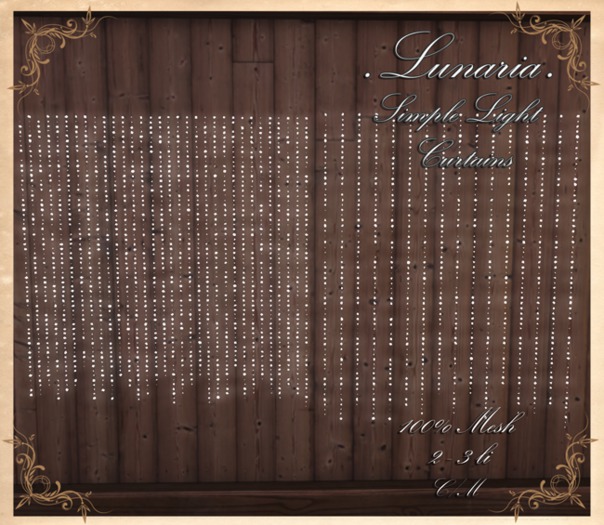 . Lunaria .
Simple Light
Curtains
100% Mesh
2 - 3 li
C/M